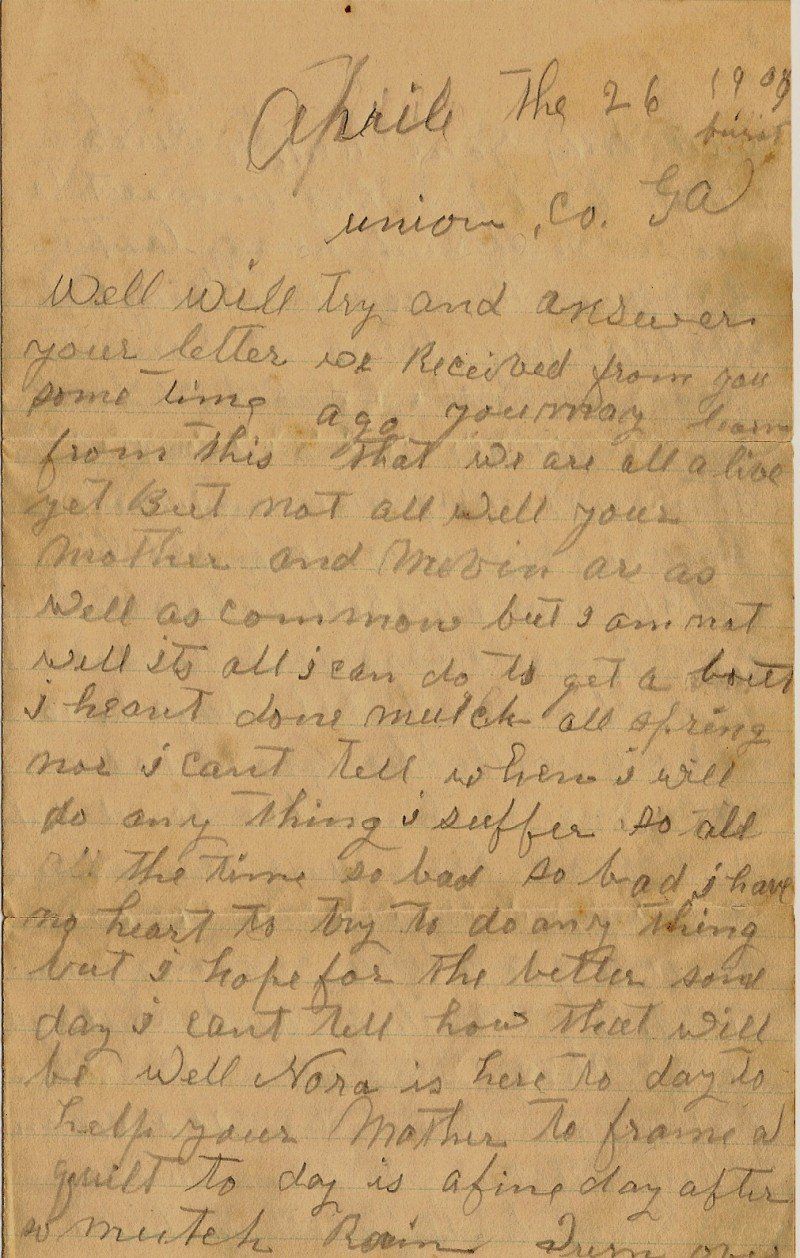 Aprile the 26 190
union, co. GA
Well will try and answer
your letter we Received from you
some time ago you may learn
from this that we are all alive
yet But not all well your
Mother and Melvin ar as
well as common but i am not
well its all i can do to get a bout
i heant done mutch all spring
nor i cant tell when i will
do any thing i suffer so all
all the time so bad so bad i have
no heart to try to do any thing
but i hope for the better som
day i cant tell how that will
be Well Nora is here to day to
help your Mother to frame a
quilt to day is a fine day after
so mutch Rain turn over